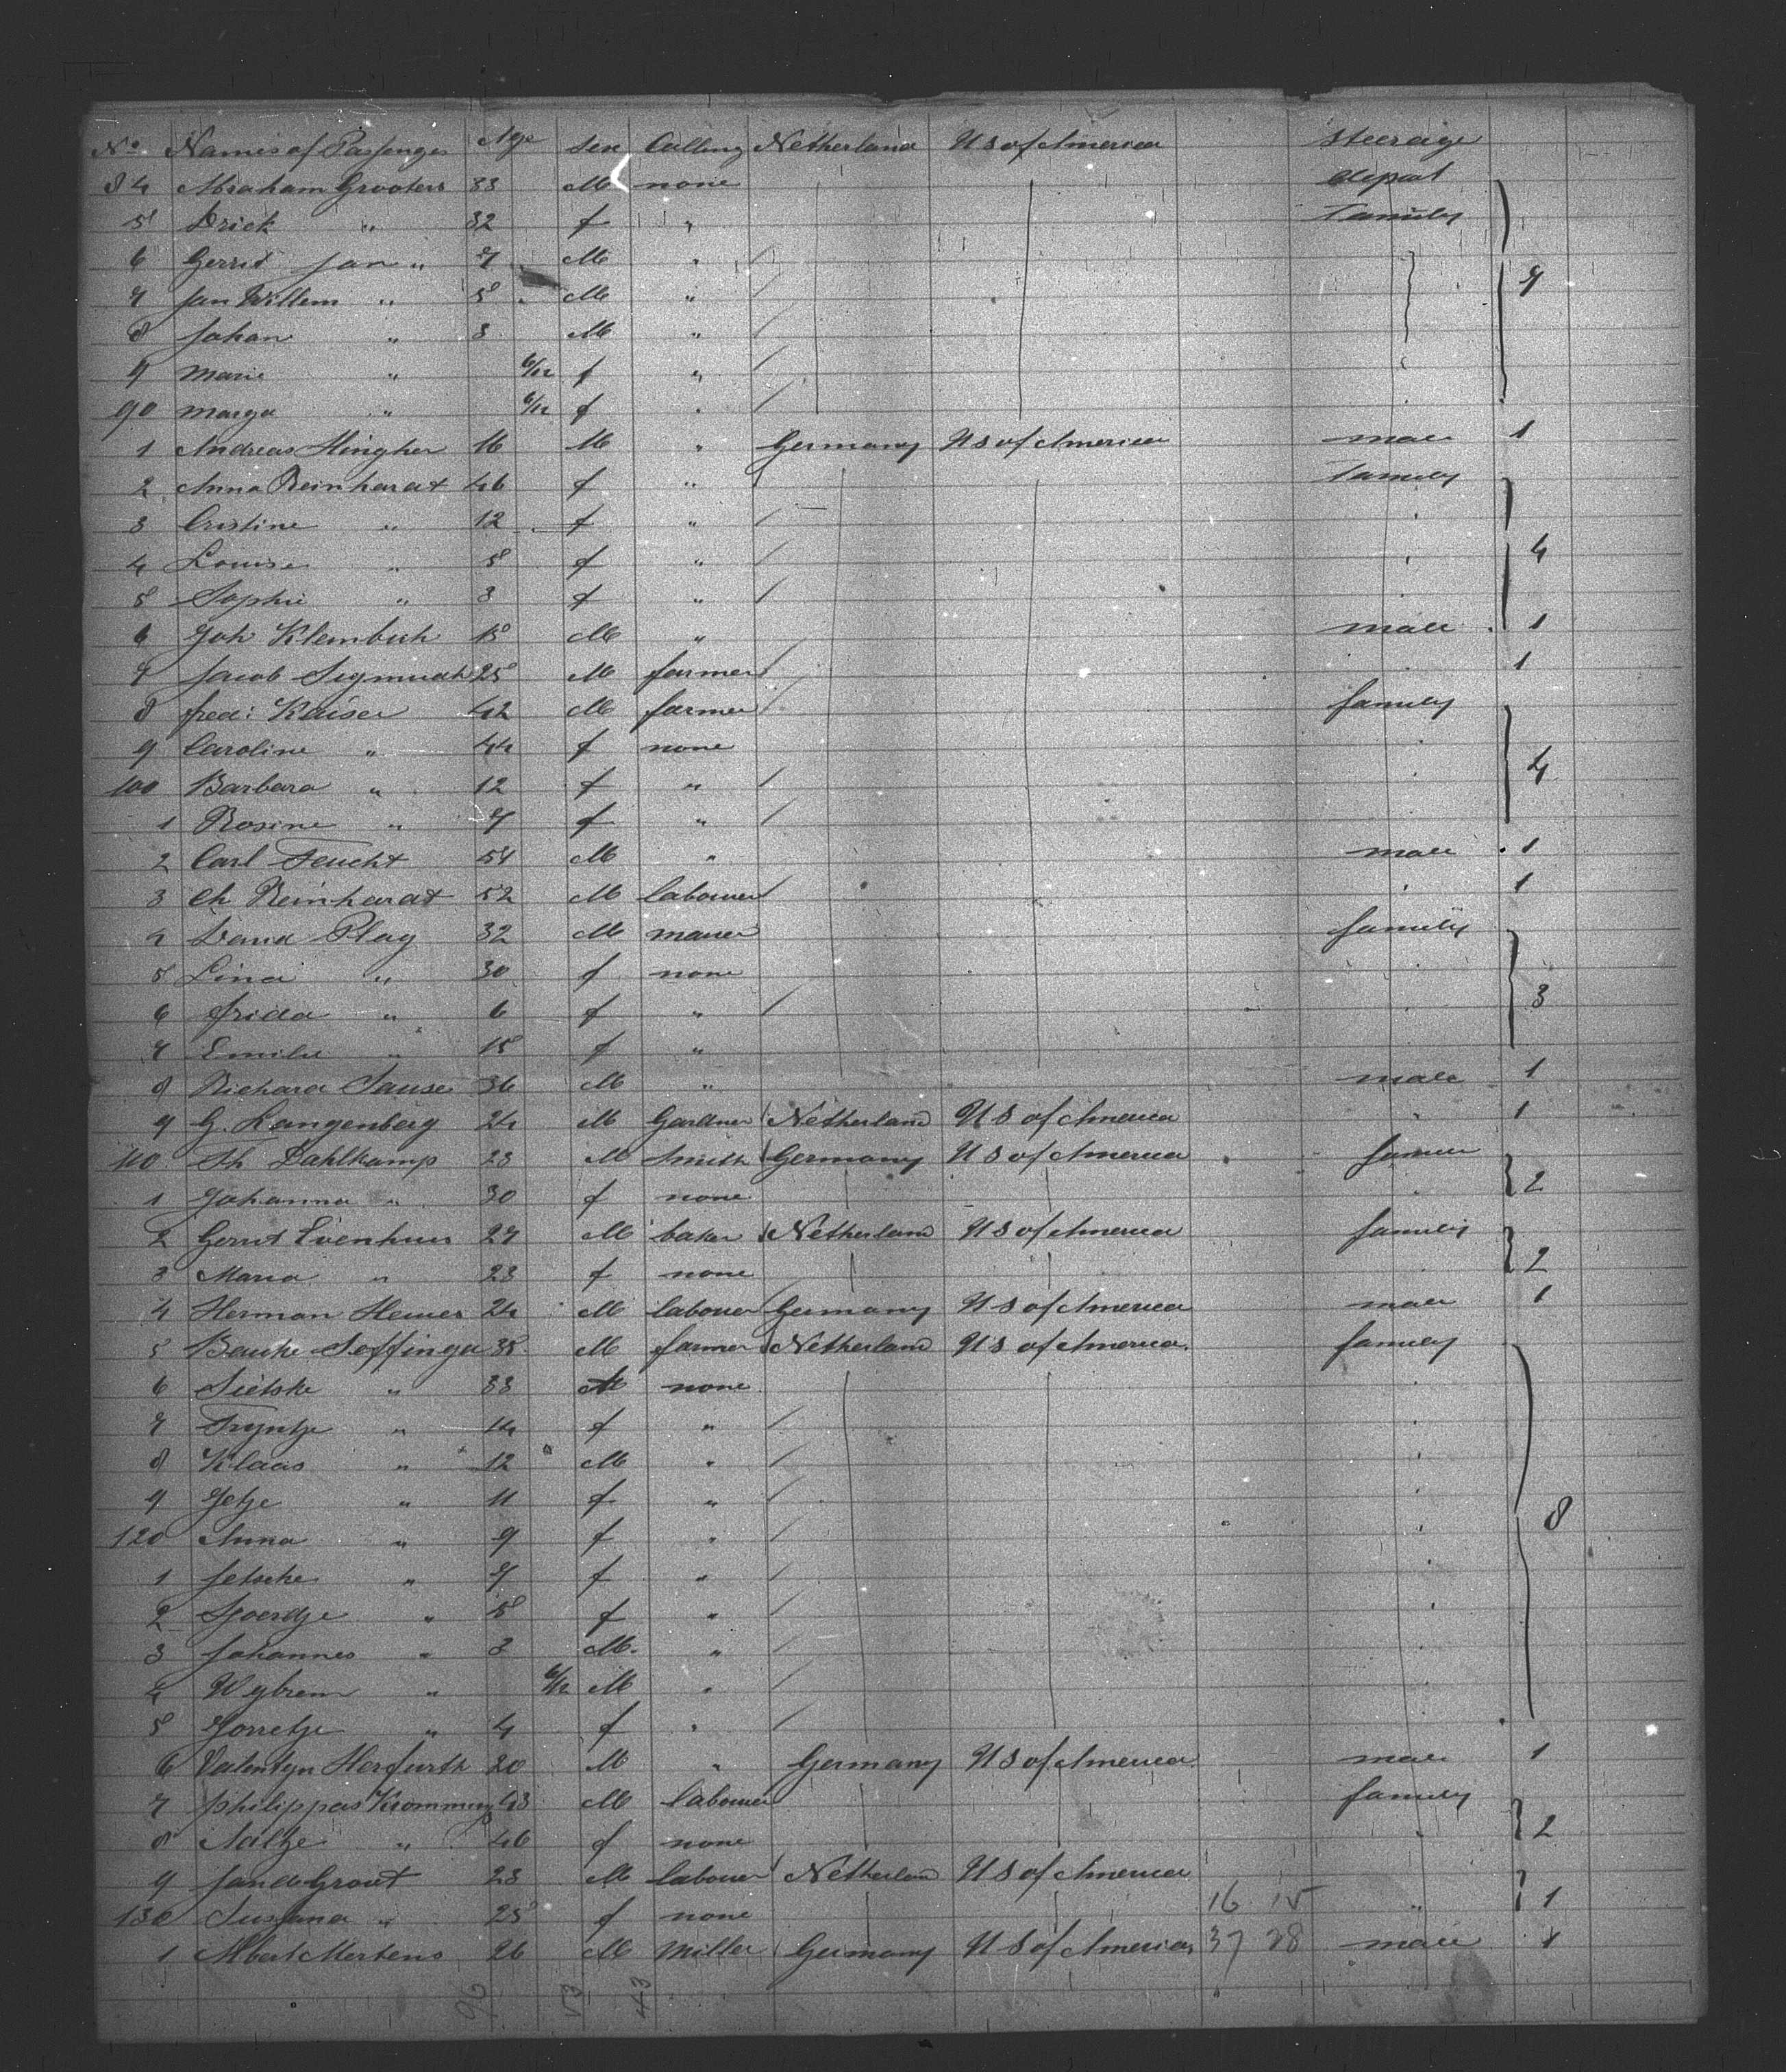 No Names of Passenger Age Sex Calling Netherland US of America steerage
84 Abraham Grooters 33 M none depart
5 Drick " 32 f " Family
6 Gerrit Jan " 7 M "
7 Jan Willem " 5 M " 7
8 Johan " 3 M "
9 Marie " 6/12 f "
90 Marga " 6/12 f "
1 Andreas Hingher 16 M " Germany US of America male 1
2 Anna Reinhardt 46 f " Family
3 Cristine " 12 f "
4 Louise " 5 f " 4
5 Sophie " 3 f "
6 Joh Klembich 15 M " male 1
7 Jacob Sigmudt 25 M farmer 1
8 fred: Kaiser 42 M farmer family
9 Caroline " 44 f none
100 Barbara " 12 f " 4
1 Rosine " 7 f "
2 Carl Feucht 54 M " male 1
3 Ch Reinhardt 52 M labouer 1
4 David Plag 32 M maner family
5 Lina " 30 f none
6 frida " 6 f " 3
7 Emilie " 15 f "
8 Richard Sause 36 M " male 1
9 G. Langenberg 24 M Gardner Netherland US of America " 1
110 Th Dahlkamp 23 M Smith Germany US of America
1 Johanna " 30 f none 2
2 Gerrit Evenhuis 27 M baker Netherland US of America family
3 Maria " 23 f none 2
4 Herman Hewer 24 M labouer Germany US of America male 1
5 Bauke Soffinga 35 M farmer Netherland US of America family
6 Sietske " 33 M none
7 Tryntje " 14 f "
8 Klaas " 12 M "
9 Jetje " 11 f " 8
120 Anna " 9 f "
1 Jetske " 7 f "
2 Sjoerdje " 5 f "
3 Johannes " 3 M "
4 Wybren " 6/12 M "
5 Jorretje " 4 f "
6 Valentyn Herfurth 20 M " Germany US of America male 1
7 philippas Kromminz 43 M labouer family
8 Aaltje " 46 f none " 2
9 Jan de Groot 23 M labouer Netherland US of America
130 Susana " 25 f none 16 15 " 1
1 Albert Mertens 26 M Miller Germany US of America 37 28 male 1
96 53 43